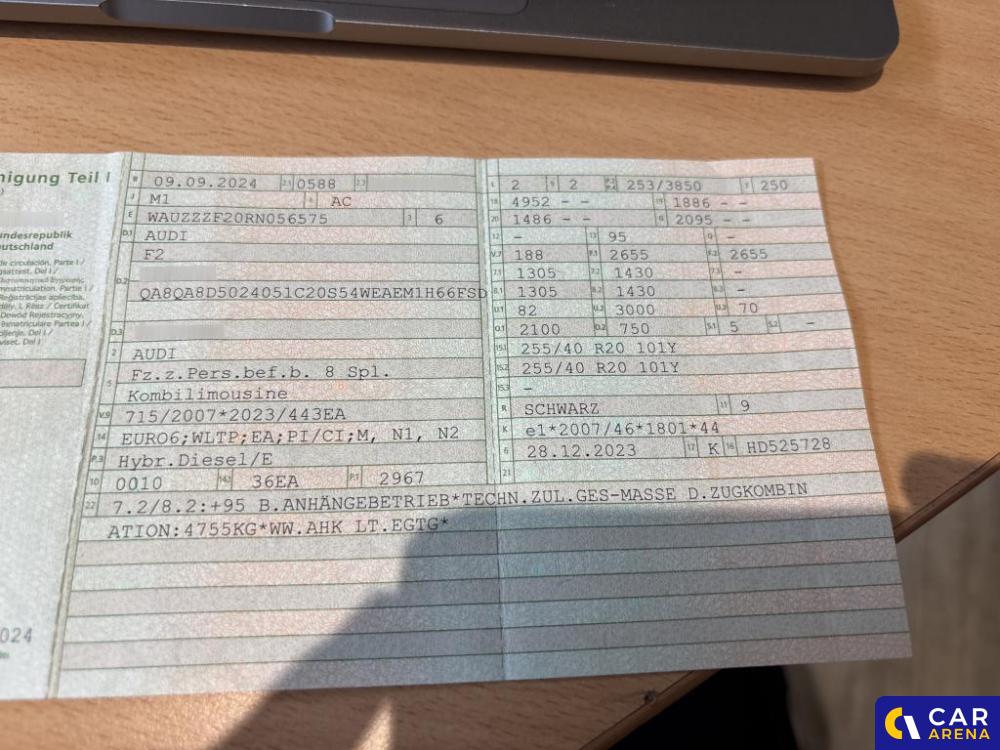 nigung Teil I
undesrepublik
eutschland
B 09.09.2024 2.1 0588 2.2
J M1 4 AC
E WAUZZZF20RN056575 3 6
D.1 AUDI
F2
D.2
QA8QA8D5024051C20S54WEAEM1H66FSD
D.3
2 AUDI
5 Fz.z.Pers.bef.b. 8 Spl.
Kombilimousine
V.9 715/2007*2023/443EA
14 EURO6;WLTP;EA;PI/CI;M, N1, N2
P.3 Hybr.Diesel/E
10 0010 14.1 36EA P.1 2967
22 7.2/8.2:+95 B.ANHÄNGEBETRIEB*TECHN.ZUL.GES-MASSE D.ZUGKOMBIN
ATION:4755KG*WW.AHK LT.EGTG*
L 2 9 2 P.2 P.4 253/3850 T 250
18 4952 - - 19 1886 - -
20 1486 - - G 2095 - -
12 - 13 95 Q -
V.7 188 F.1 2655 F.2 2655
7.1 1305 7.2 1430 7.3 -
8.1 1305 8.2 1430 8.3 -
U.1 82 U.2 3000 U.3 70
O.1 2100 O.2 750 S.1 5 S.2 -
15.1 255/40 R20 101Y
15.2 255/40 R20 101Y
15.3 -
R SCHWARZ 11 9
K e1*2007/46*1801*44
6 28.12.2023 17 K 16 HD525728
21
024
CAR
ARENA